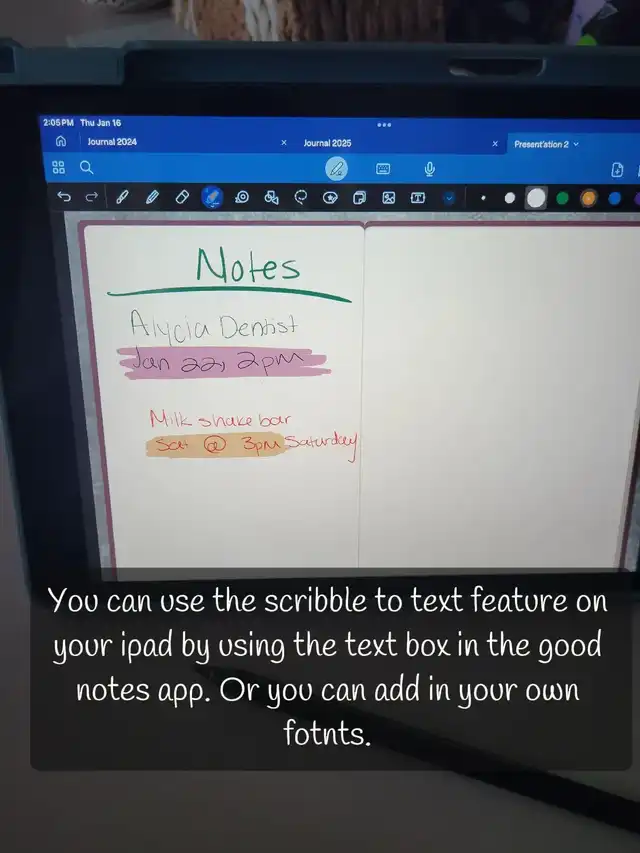 2:05 PM Thu Jan 16
Journal 2024
Journal 2025
Present'ation 2
Notes
Alycia Dentist
Jan 22, 2pm
Milk shake bar
Sat @ 3pm Saturday
You can use the scribble to text feature on
your ipad by using the text box in the good
notes app. Or you can add in your own
fotnts.